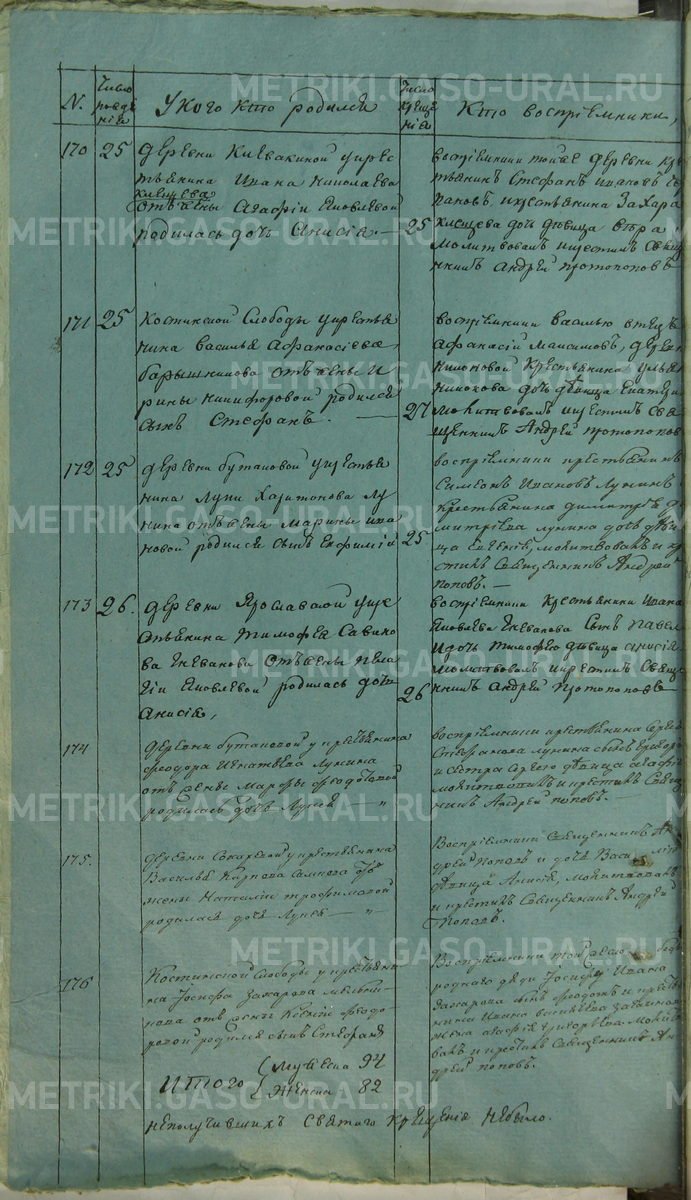 N.
Число рожденія
У кого кто родился
Число крещенія
Кто воспріемники,
170
25
Деревни Клевакиной у крес
тьянина Ивана Николаева
Клещева
отъ жены Агафіи Яковлевой
родилась дочь Анисія. —
25
воспріемники той же деревни кре
стьянинъ Стефанъ Ивановъ
и крестьянина Захара
Клещева дочь девица
молитвовалъ и крестилъ свящ
нникъ Андрей Протопоповъ
171
25
Костинской Слободы у крестья
нина Василья Афанасіева
барышникова отъ жены И
рины Никифоровой родился
сынъ Стефанъ. —
27
воспріемники Василью отецъ
Афанасій Максимовъ, дерев
Никоновой Крестьянина Улья
Никонова дочь девица Екатери
молитвовалъ и крестилъ Свя
щенникъ Андрей Протопопов
172
25
деревни бутаковой у крестья
нина Луки Харитонова Лу
кина отъ жены Марины Ива
новой родился сынъ Евфимій
25
воспріемники крестьянинъ
Симеонъ Ивановъ Лукинъ
Крестьянина Димитрія
митріева Лукина дочь деви
ца Евгенія, молитвовалъ и кре
стилъ Священникъ Андрей
Поповъ. —
173
26.
деревни Ярославской у кре
стьянина Тимофея Савино
ва Гневанова отъ жены Пела
гіи Яковлевой, родилась дочь
Анисія,
26
воспріемники Крестьянина Ивана
Яковлева Гневанова сынъ Павелъ
и дочь Тимофею девица Анисія
молитвовалъ и крестилъ Свяще
нникъ Андрей Протопоповъ
174
деревни бутаковой у крестьянина
Феодора Игнатьева Лукина
отъ жены Марфы Феодотовой
родилась дочь Лукія — "
воспріемники крестьянина Сергея
Стефанова Лукина сынъ Григорій
и сестра Сергею девица Агафія
молитвовалъ и крестилъ Свяще
никъ Андрей Поповъ.
175.
деревни Соколовой у крестьянина
Василья Карпова отъ
жены Наталіи Трофимовой
родилась дочь Лукія — "
Воспріемники Священникъ Ан
дрей Поповъ и дочь
девица Анисія, молитвовалъ
и крестилъ Священникъ Андрей
Поповъ.
176
Костинской Слободы у крестьяни
на Іосифа Захарова Мельни
кова отъ жены Ксеніи Феодо
ровой родился сынъ Стефанъ
Воспріемники той же Слободы
роднаго дяди Іосифу Ивана
Захарова сынъ Феодотъ и кресть
янина Ивана
жена Агафія Григорьева. Молитво
валъ и крестилъ Священникъ Ан
дрей Поповъ.
Итого
Мужеска 94
Женска 82
неполучившихъ Святаго Крещенія небыло.
METRIKI.GASO-URAL.RU
METRIKI.GASO-URAL.RU
METRIKI.GASO-URAL.RU
METRIKI.GASO-URAL.RU
METRIKI.GASO-URAL.RU
METRIKI.GASO-URAL.RU
METRIKI.GASO-URAL.RU
METRIKI.GASO-URAL.RU